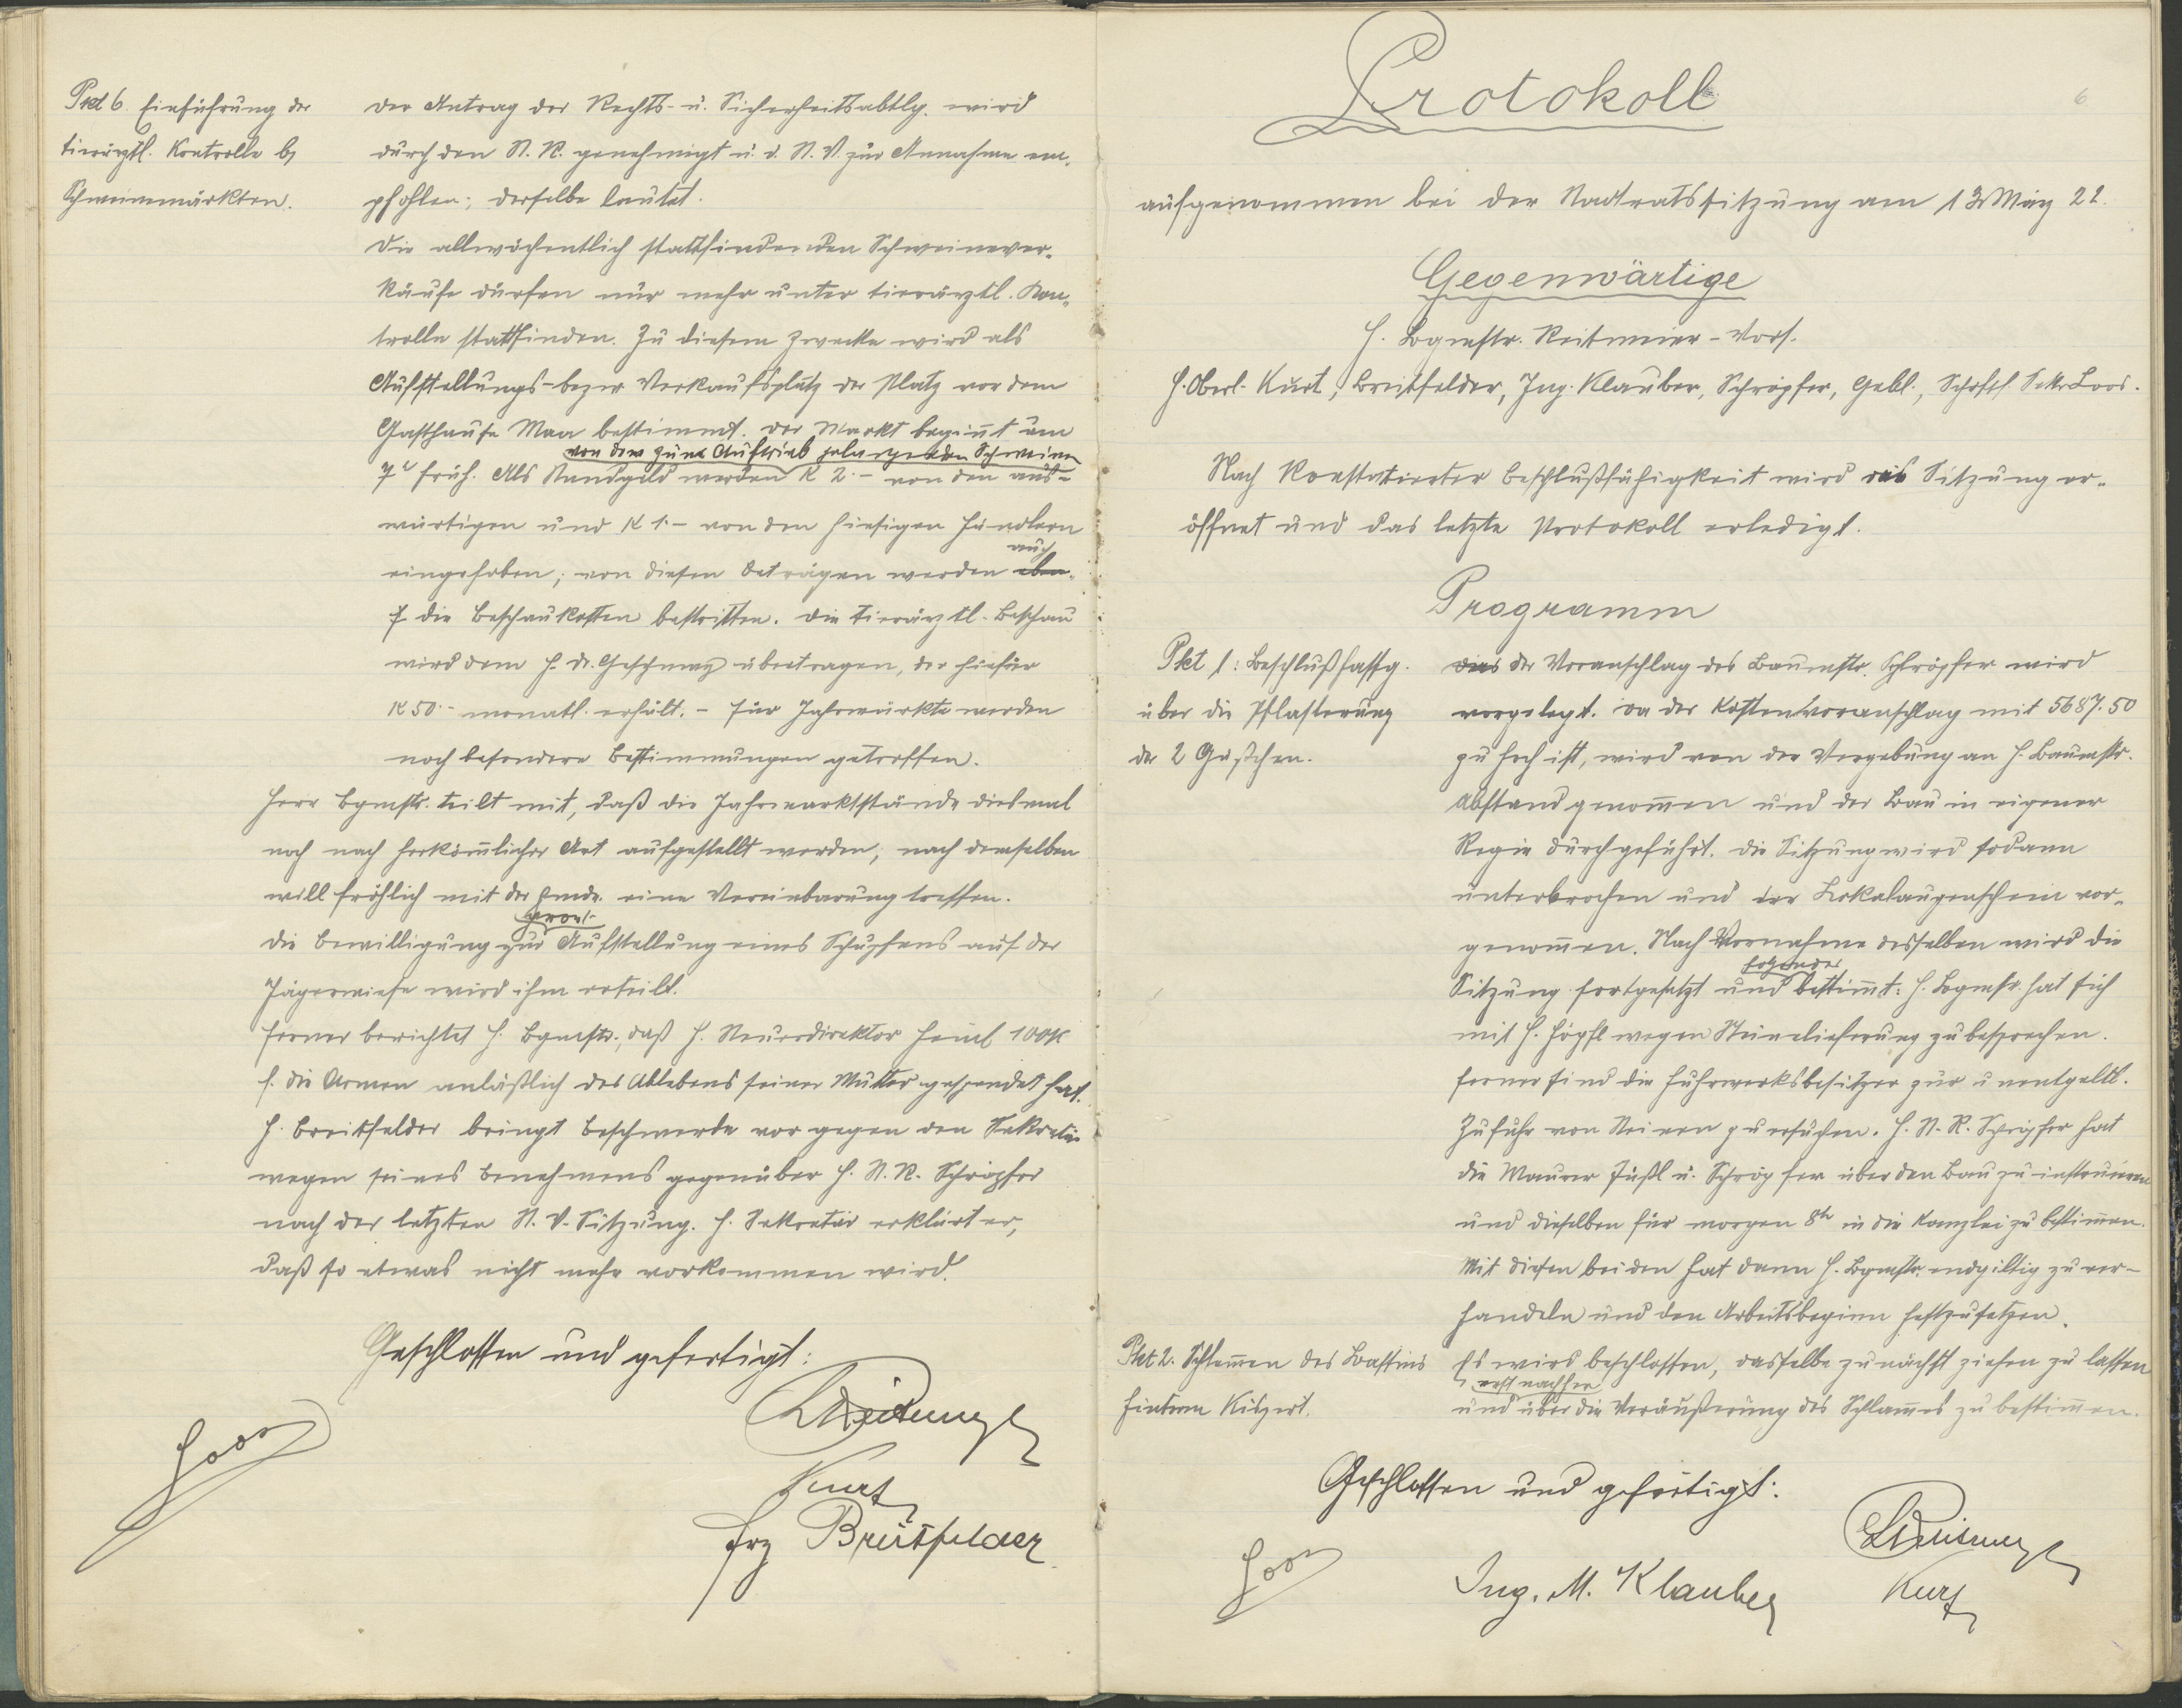 Pkt 6. Einführung der
tierärztl. Kontrolle b/
Schweinemärkten.
Der Antrag der Rechts- u. Sicherheitsabtlg. wird
durch den St. R. genehmigt u. d. St. V. zur Annahme em-
pfohlen; derselbe lautet.
Die allwöchentlich stattfindenden Schweinever-
käufe dürfen nur mehr unter tierärztl. Kon-
trolle stattfinden. Zu diesem Zwecke wird als
Aufstellungs- bezw Verkaufsplatz der Platz vor dem
Gasthause Maa bestimmt. Der Markt beginnt um
von dem zum Auftrieb gelangenden Schweinen
7h früh. Als Standgeld werden K 2.- von den aus-
wärtigen und K 1.- von den hiesigen Händlern
auch
eingehoben; von diesen Beträgen werden eben-
f die Beschaukosten bestritten. Die tierärztl. Beschau
wird dem H. Dr. übertragen, der hiefür
K 50.- monatl. erhält. - Für Jahrmärkte werden
noch besondere Bestimmungen getroffen.
Herr Bgmstr. teilt mit, daß die Jahrmarktstände diesmal
noch nach herkömmlicher Art aufgestellt werden; nach demselben
will Fröhlich mit der Gmde. eine Vereinbarung treffen.
prov.
Die Bewilligung zur Aufstellung eines Schupfens auf der
Jägerwiese wird ihm erteilt.
Ferner berichtet H. Bgmstr., daß H. Steuerdirektor Heinl 100K
f. die Armen anläßlich des Ablebens seiner Mutter gespendet hat.
H. Breitfelder bringt Beschwerde vor gegen den Sekretär
wegen seines Benehmens gegenüber H. St. R. Schröpfer
nach der letzten St. V. Sitzung. H. Sekretär erklärt er,
daß so etwas nicht mehr vorkommen wird.
Geschlossen und gefertigt:
Loos
Kurt
Frz Breitfelder
6
Protokoll
aufgenommen bei der Stadtratssitzung am 13 März 22.
Gegenwärtige
H. Bgmstr. Reitmeier - Vors.
H. Oberl. Kurt, Breitfelder, Ing. Klauber, Schröpfer, Gebl., Schftf. Sekr Loos.
Nach konstatierter Beschlußfähigkeit wird die Sitzung er-
öffnet und das letzte Protokoll erledigt.
Programm
Pkt 1: Beschlußfassg.
über die Pflasterung
der 2 Gäßchen.
Der Voranschlag des Baumstr. Schröpfer wird
vorgelegt. Da der Kostenvoranschlag mit 5687.50
zu hoch ist, wird von der Vergebung an H. Baumstr.
Abstand genommen und der Bau in eigener
Regie durchgeführt. Die Sitzung wird sodann
unterbrochen und der Lokalaugenschein vor-
genommen. Nach Vornahme desselben wird die
folgendes
Sitzung fortgesetzt und bestimmt: H. Bgmstr. hat sich
mit H. Höpfl wegen Steinelieferung zu besprechen.
Ferner sind die Fuhrwerksbesitzer zur unentgeltl.
Zufuhr von Steinen zu ersuchen. H. St. R. Schröpfer hat
die Maurer Füßl u. Schröpfer über den Bau zu instruieren
und dieselben für morgen 8h in die Kanzlei zu bestimmen.
Mit diesen beiden hat dann H. Bgmstr. endgiltig zu ver-
handeln und den Arbeitsbeginn festzusetzen.
Pkt 2. Schlemmen des Bassins
hinterm
Es wird beschlossen, dasselbe zunächst ziehen zu lassen
erst nachher
und über die Veräußerung des Schlammes zu bestimmen.
Geschlossen und gefertigt:
Loos
Ing. M. Klauber
Kurt